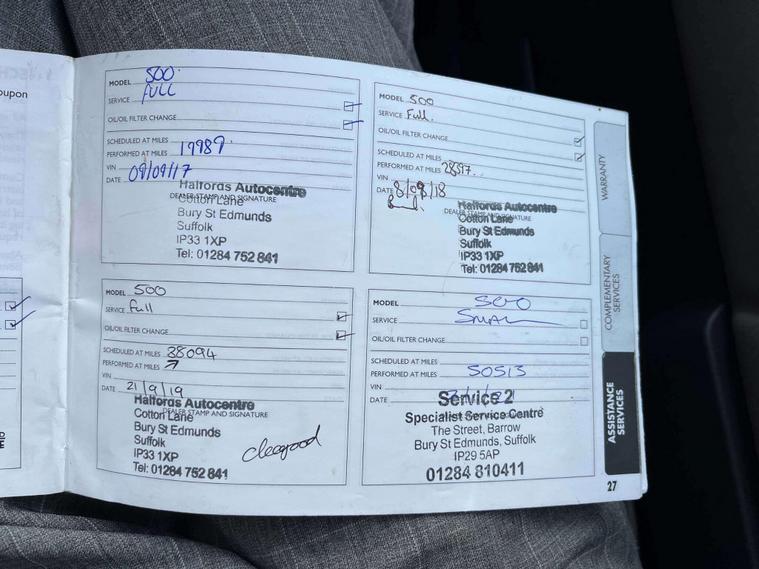 oupon
MODEL 500
SERVICE FULL
OIL/OIL FILTER CHANGE
SCHEDULED AT MILES
PERFORMED AT MILES 19989
VIN
DATE 09/09/17
Halfords Autocentre
DEALER STAMP AND SIGNATURE
Cotton Lane
Bury St Edmunds
Suffolk
IP33 1XP
Tel: 01284 752 841
MODEL 500
SERVICE Full
OIL/OIL FILTER CHANGE
SCHEDULED AT MILES
PERFORMED AT MILES 28597
VIN
DATE 8/09/18
Halfords Autocentre
DEALER STAMP AND SIGNATURE
Cotton Lane
Bury St Edmunds
Suffolk
IP33 1XP
Tel: 01284 752 841
MODEL 500
SERVICE Full
OIL/OIL FILTER CHANGE
SCHEDULED AT MILES 38094
PERFORMED AT MILES
VIN
DATE 21/9/19
Halfords Autocentre
DEALER STAMP AND SIGNATURE
Cotton Lane
Bury St Edmunds
Suffolk
IP33 1XP
Tel: 01284 752 841
MODEL 500
SERVICE SMALL
OIL/OIL FILTER CHANGE
SCHEDULED AT MILES
PERFORMED AT MILES 50513
VIN
DATE
Service 2
Specialist Service Centre
The Street, Barrow
Bury St Edmunds, Suffolk
IP29 5AP
01284 810411
WARRANTY
COMPLEMENTARY SERVICES
ASSISTANCE SERVICES
27